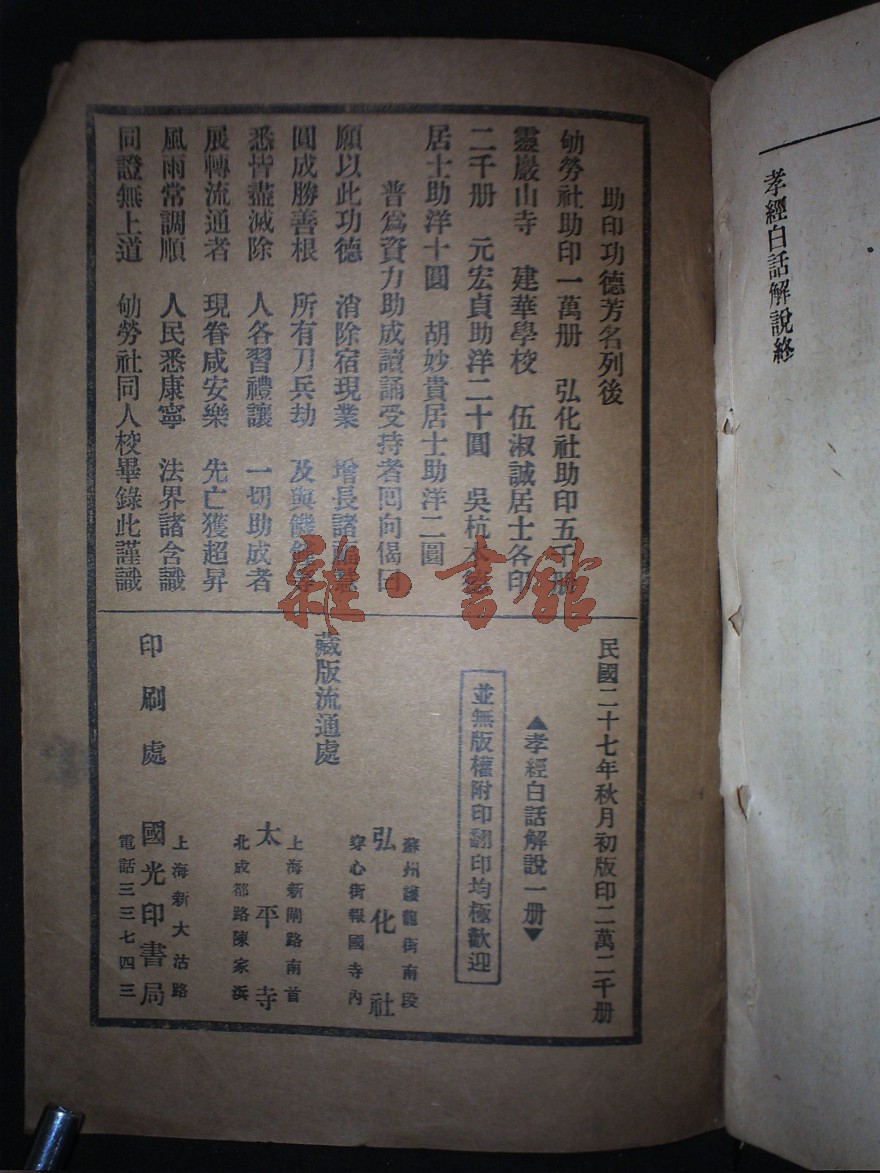 孝經白話解說終
助印功德芳名列後
劬勞社助印一萬册　弘化社助印五千册
靈巖山寺　建華學校　伍淑誠居士各印
二千册　元宏貞助洋二十圓　吳杭
居士助洋十圓　胡妙貴居士助洋二圓
普爲資力助成讀誦受持者囘向偈曰
願以此功德　消除宿現業　增長諸
圓成勝善根　所有刀兵劫　及與饑
悉皆盡滅除　人各習禮讓　一切助成者
展轉流通者　現眷咸安樂　先亡獲超昇
風雨常調順　人民悉康寧　法界諸含識
同證無上道　劬勞社同人校畢錄此謹識
民國二十七年秋月初版印二萬二千册
▲孝經白話解說一册▼
並無版權附印翻印均極歡迎
藏版流通處
蘇州護龍街南段
弘化社
穿心街報國寺內
上海新閘路南首
太平寺
北成都路陳家浜
印刷處
上海新大沽路
國光印書局
電話三三七四三
雜·書館